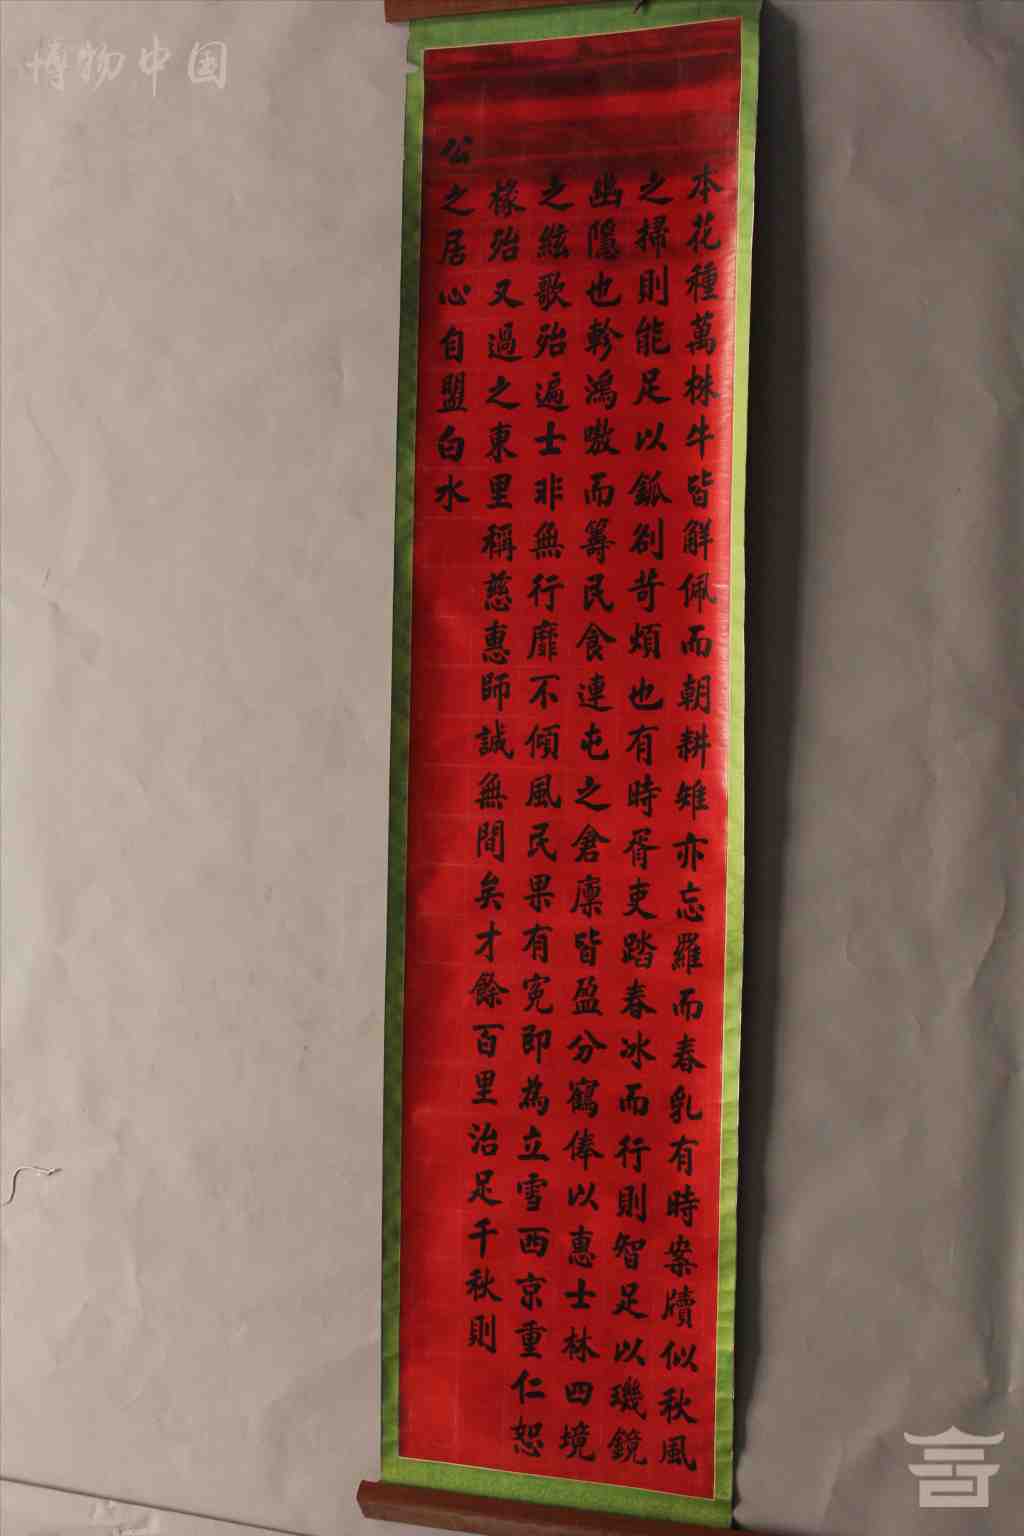 博物中国
本花種萬株牛皆觧佩而朝耕雉亦忘羅而春乳有時案牘似秋風
之掃則能足以鈲劀苛煩也有時胥吏踏春冰而行則智足以璣鏡
幽隱也軫鴻嗷而籌民食連屯之倉廪皆盈分鶴俸以惠士林四境
之絃歌殆遍士非無行靡不傾風民果有寃即為立雪西京重仁恕
椽殆又過之東里稱慈惠師誠無間矣才餘百里治足千秋則
公之居心自盟白水